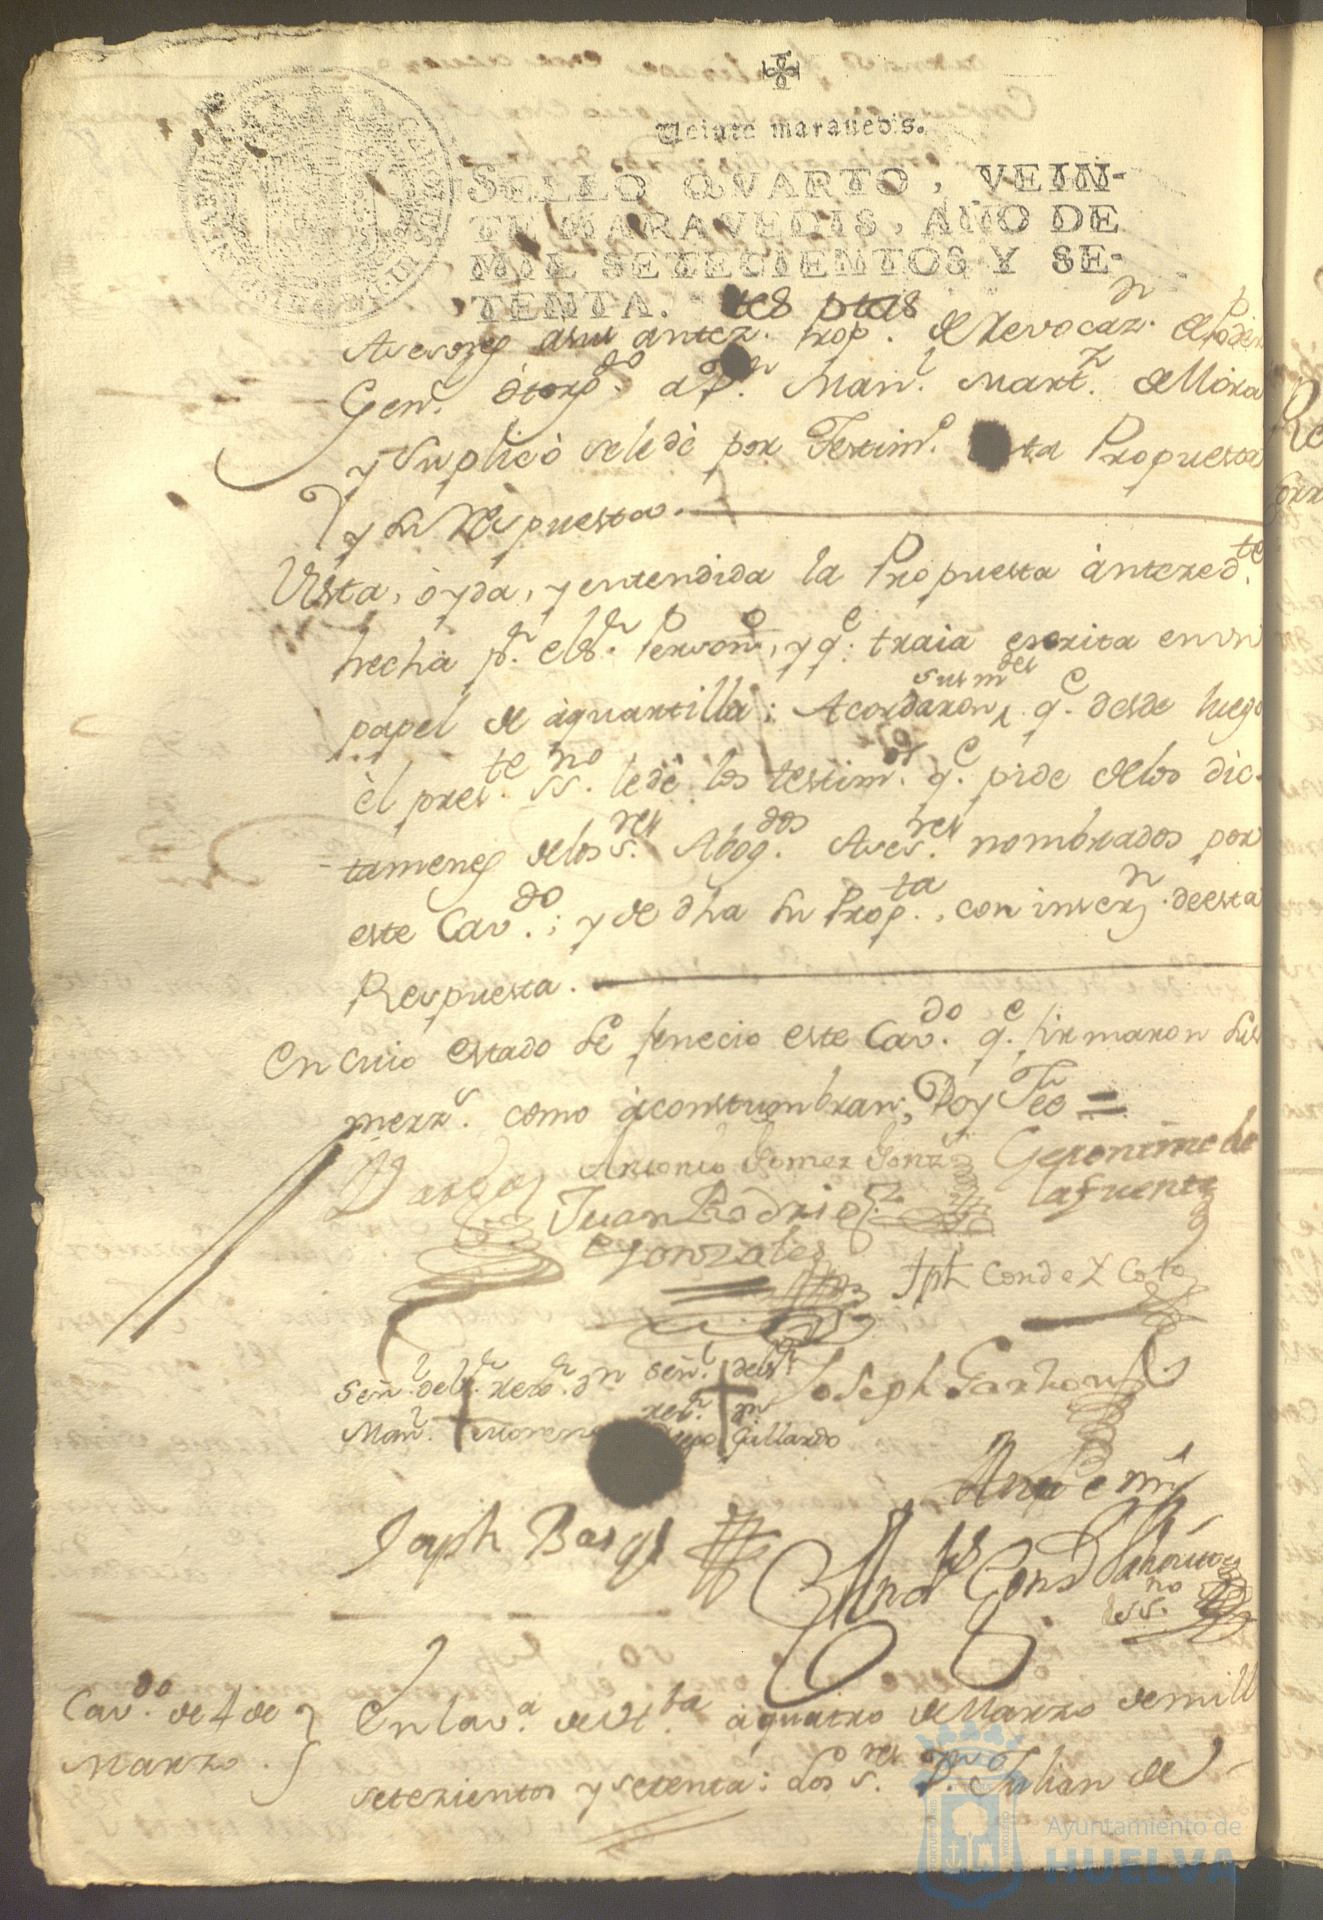 Veinte maravedis.
SELLO QVARTO, VEIN-
TE MARAVEDIS, AÑO DE
MIL SETECIENTOS Y SE-
TENTA.
Asesores asu antez. Prop. de Revocazn. de Poder
Genl. otorgdo. a Dn. Manl. Martz. de Mora
y suplicò sele dè por Testimo. ta Propuesta
y su Respuesta.
Vista, òyda, y entendida la Propuesta àntezedte.
hecha pr. el Sr. Persono., y qe. traìa escrita en un
papel de àquartilla; Acordaron sus mdes qe. desde luego
èl preste. ssno. le dè los testimos. qe. pide de los dic-
tamenes de los sres. Abogdos. Asesres. nombrados por
este Cavdo.; y de dha su Propta., con inserzn. de esta
Respuesta.
En cuio estado se fenecio este Cavdo. qe. firmaron sus
merzs. como àcostumbran, Doy Feè =
Vargas
Antonio Gomez Gonzs
Geronimo de
la fuente
Juan Rodrigz
Gonzales
Jph Conde y Coto
Señl. del Sr. rexor. Dn
Manl. Moreno
Señl. del Sr.
rexr. Dn
Gillardo
Joseph Garzon
Joseph Bargs
Ante mi
ssno.
Cavdo. de 4 de
Marzo.
En la va. de Hba à quatro de Marzo de mill
setezientos y setenta: Los sres. Dn. Julian de
Ayuntamiento de
HUELVA